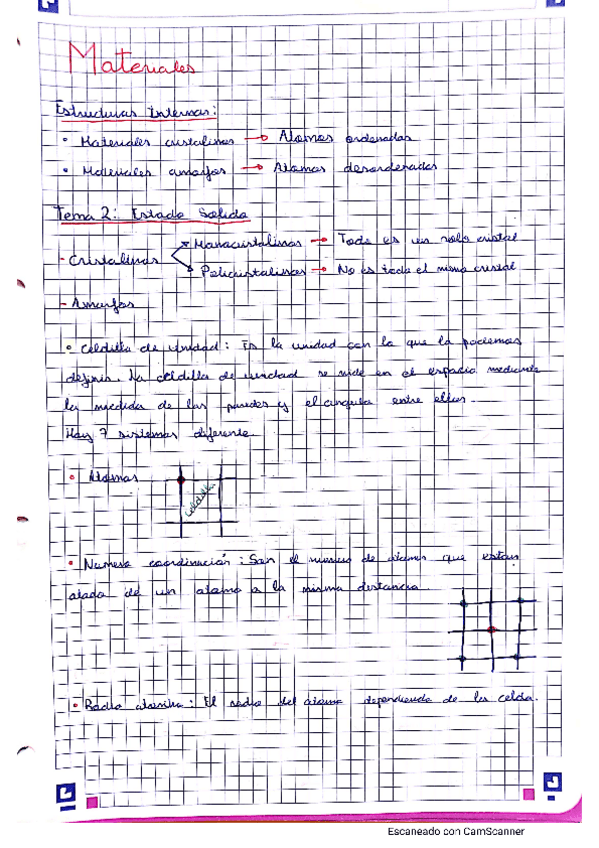 Materiales
Estructuras Internas:
• Materiales cristalinos → Atomos ordenados
• Materiales amorfos → Atomos desordenados
Tema 2: Estado Solido
- Cristalinos
Monocristalinos → Todo es un solo cristal
Policristalinos → No es todo el mismo cristal
- Amorfos
• Celdilla de unidad: Es la unidad con la que la podemos
definir. La celdilla de unidad se mide en el espacio mediante
la medida de las paredes y el angulo entre ellas.
Hay 7 sistemas diferente.
• Atomos
celdilla
• Numero coordinación: Son el numero de atomos que estan
de un atomo a la misma distancia.
• Radio atomico: El radio del atomo dependiendo de la celda.
Escaneado con CamScanner